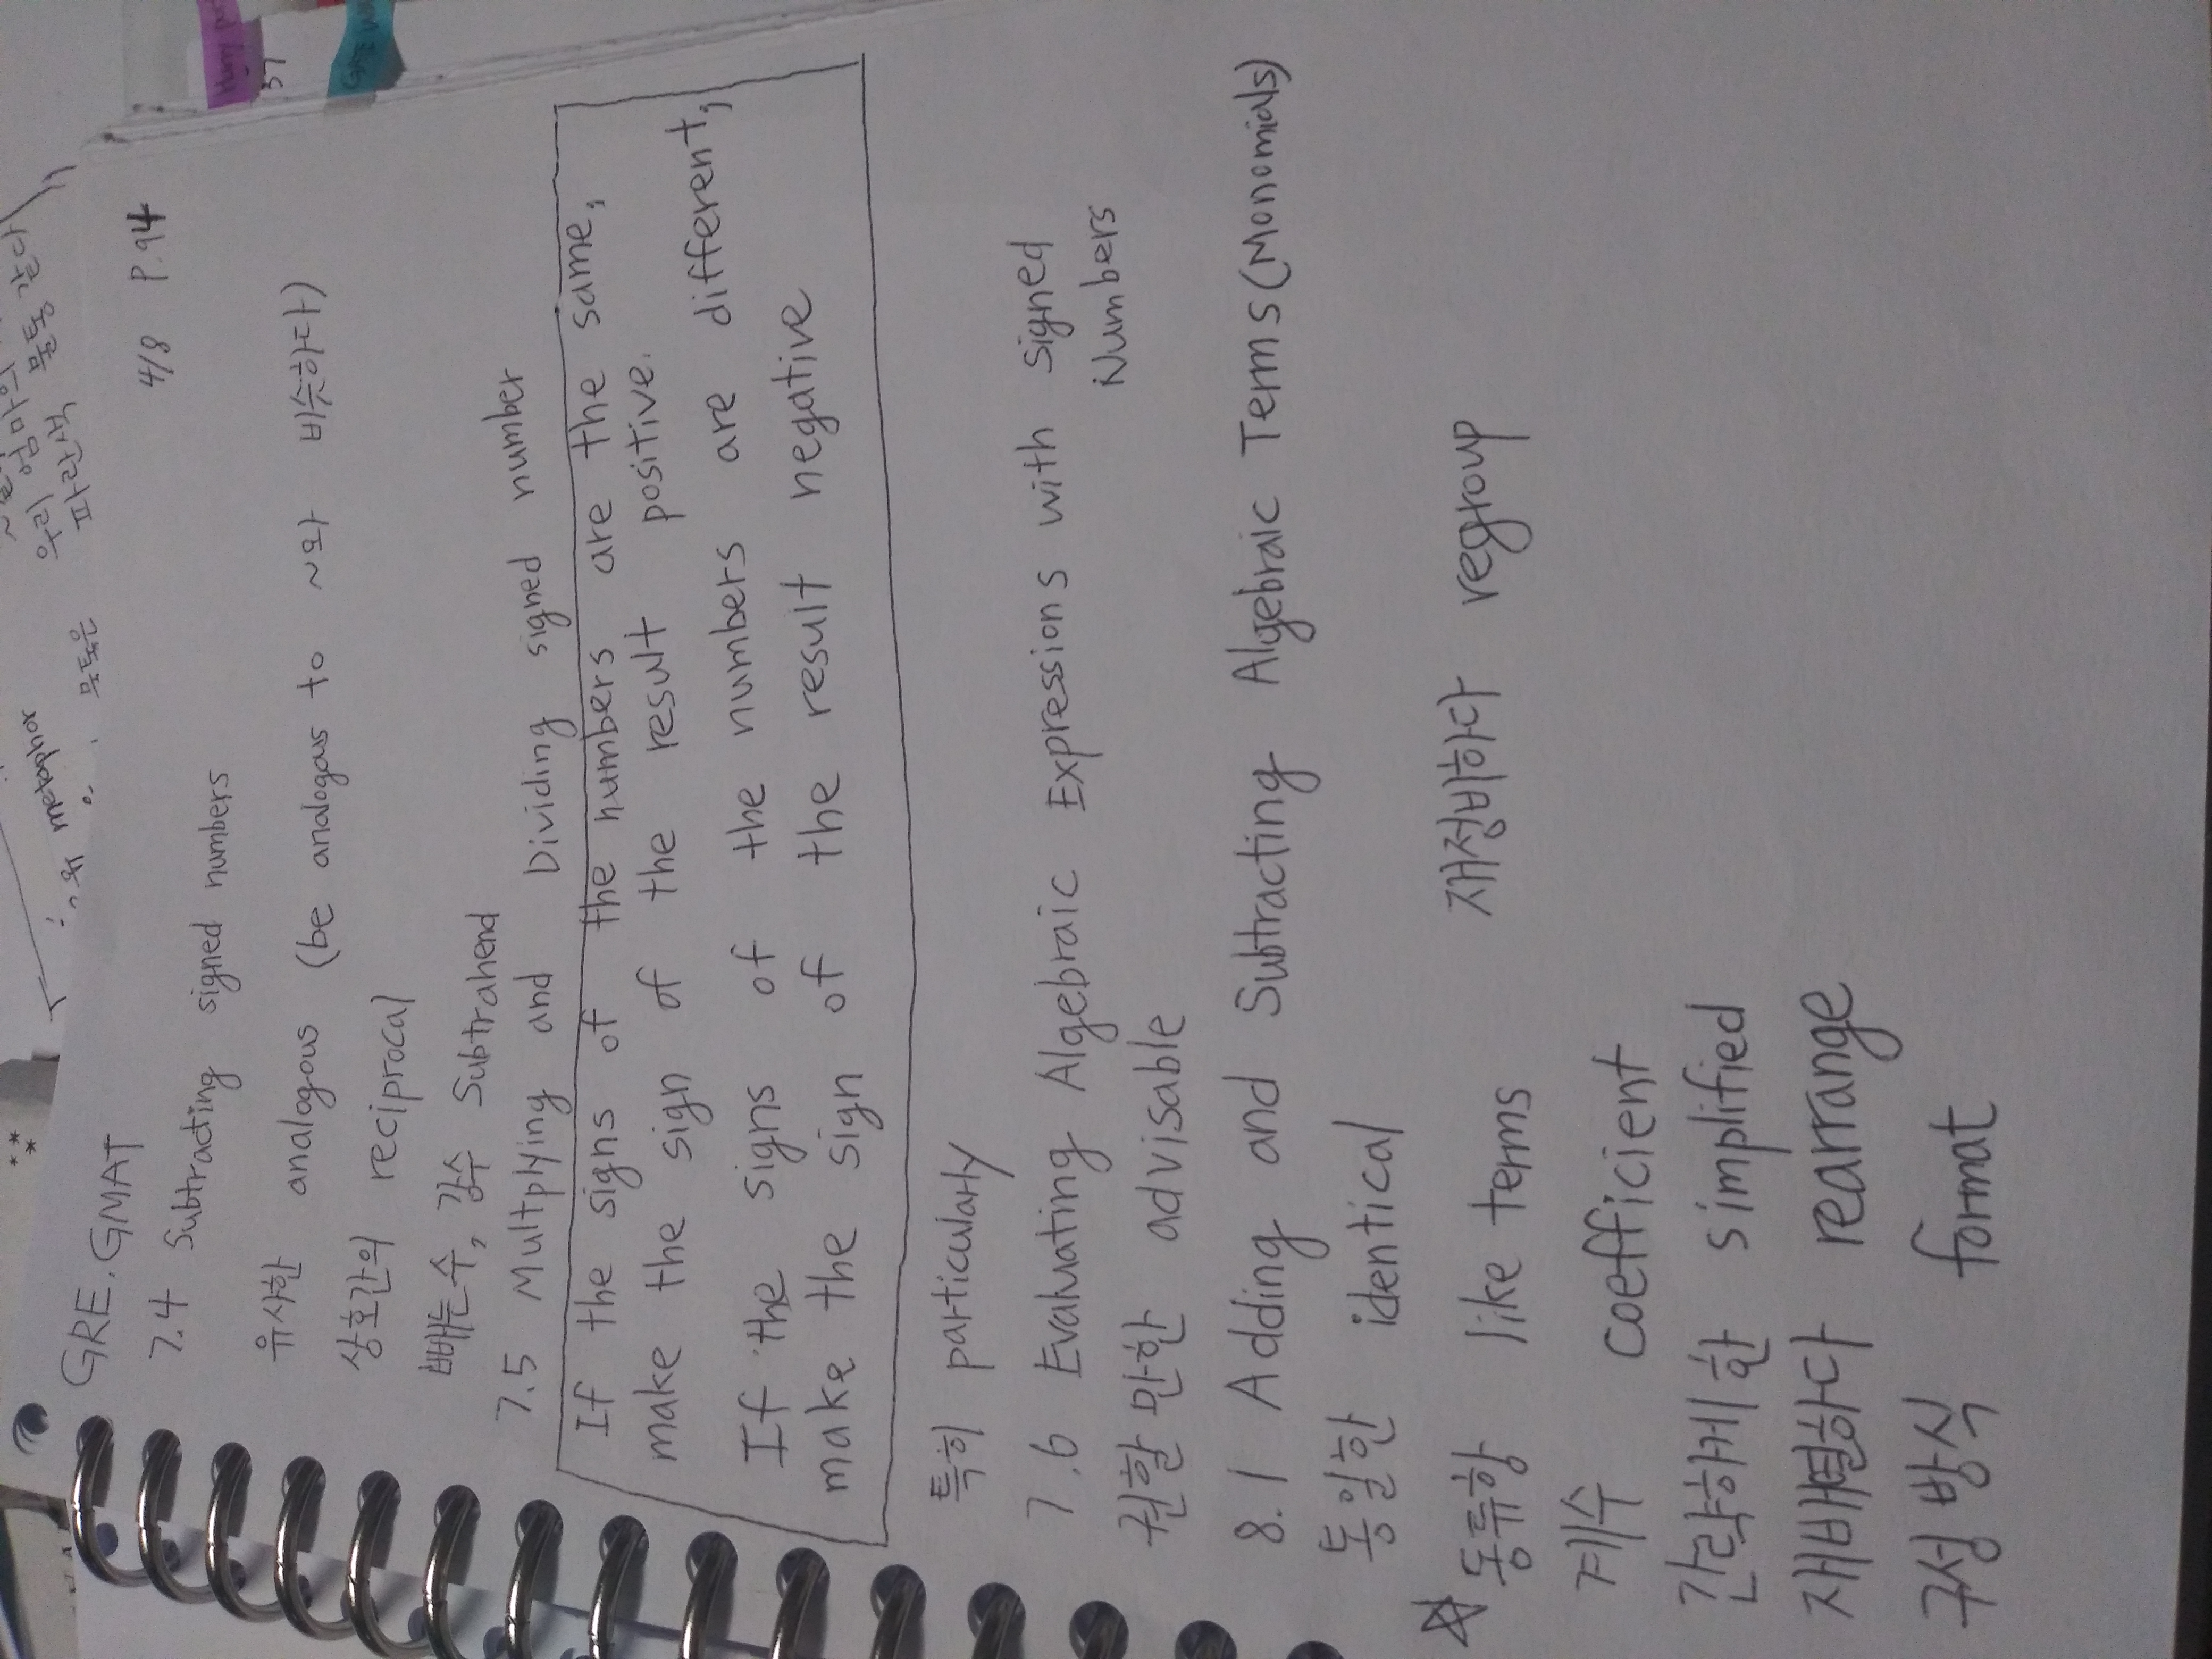 GRE. GMAT 4/8 P.94
7.4 Subtracting signed numbers
유사한 analogous (be analogous to ~와 비슷하다)
상호간의 reciprocal
빼는수, 감수 Subtrahend
7.5 Multplying and Dividing signed number
If the signs of the numbers are the same,
make the sign of the result positive.
If the signs of the numbers are different,
make the sign of the result negative
특히 particularly
7.6 Evaluating Algebraic Expressions with signed
Numbers
권할 만한 advisable
8.1 Adding and Subtracting Algebraic Terms (Monomials)
동일한 identical
☆ 동류항 like terms 재정비하다 regroup
계수 coefficient
간략하게 한 simplified
재배열하다 rearrange
구성 방식 format
metaphor
우리 엄마의
파란색 물통 같다
물통은
37